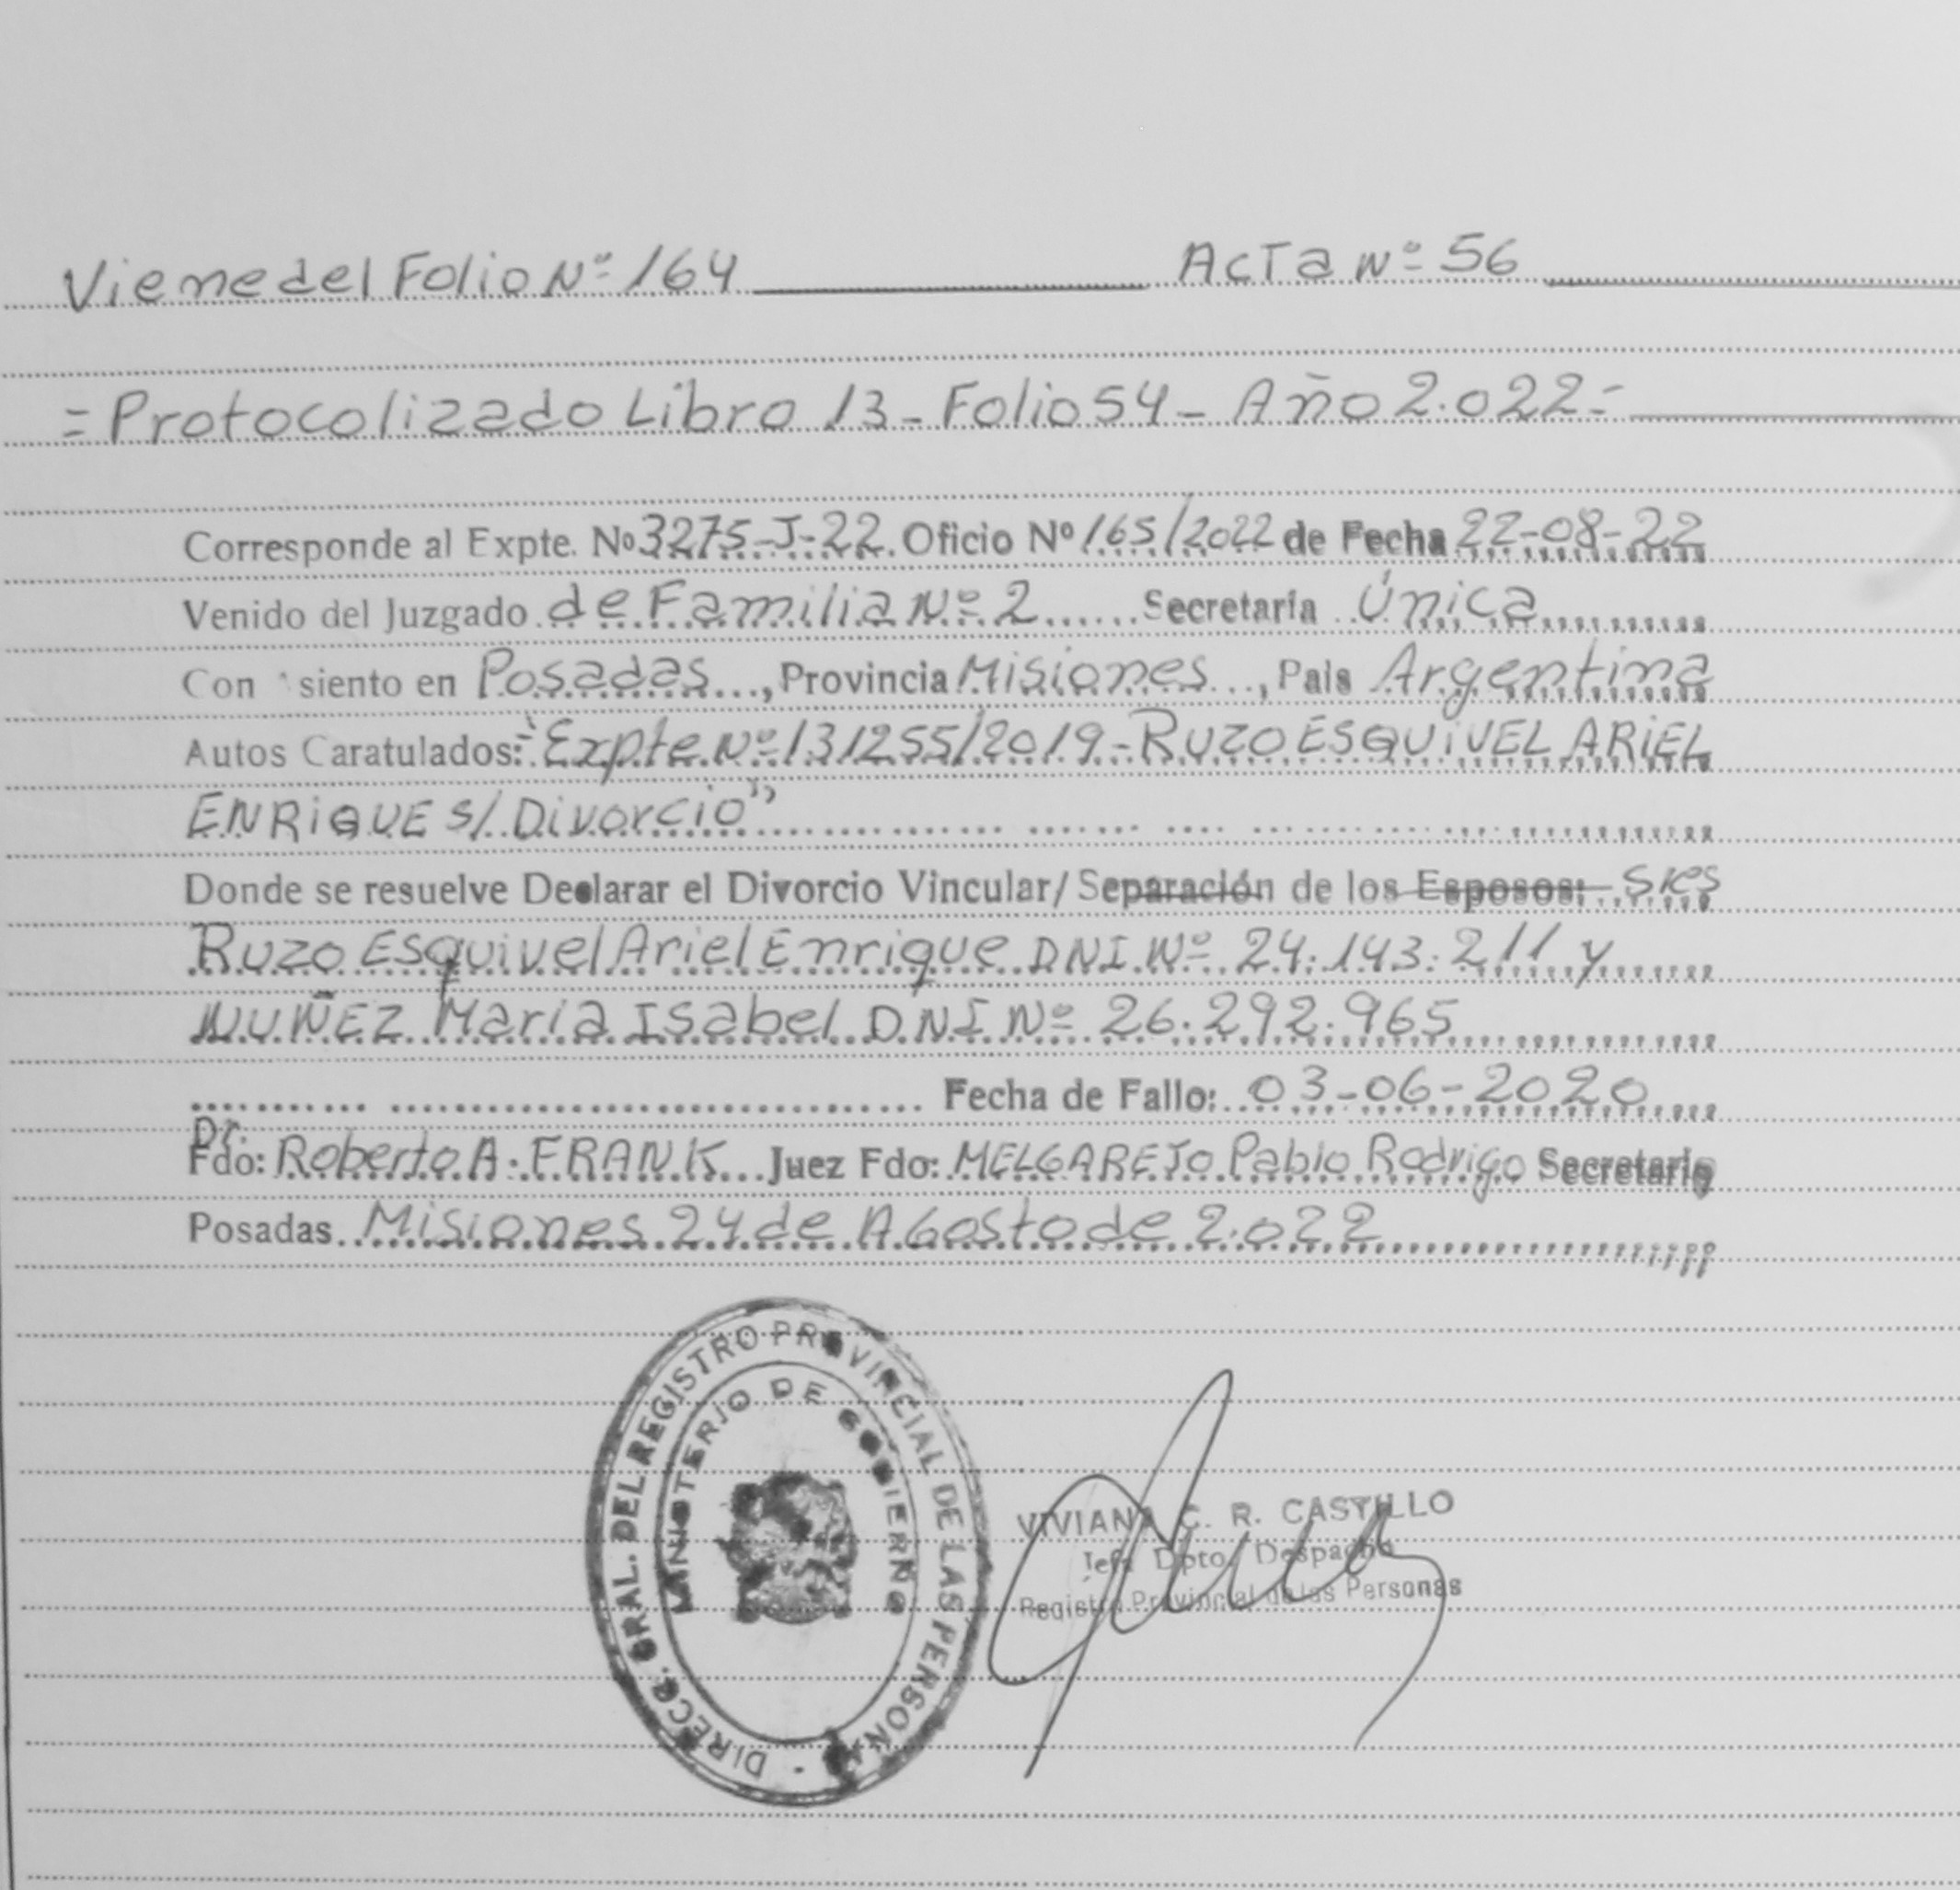 Viene del Folio Nº 164 Acta Nº 56
= Protocolizado Libro 13 - Folio 54 - Año 2.022 =
Corresponde al Expte. Nº 3275-J-22. Oficio Nº 165/2022 de Fecha 22-08-22
Venido del Juzgado de Familia Nº 2 Secretaría Única
Con siento en Posadas, Provincia Misiones, País Argentina
Autos Caratulados: "Expte Nº 131255/2019 - RUZO ESQUIVEL ARIEL
ENRIQUE S/ Divorcio"
Donde se resuelve Declarar el Divorcio Vincular/ Separación de los Esposos: Sres
Ruzo Esquivel Ariel Enrique DNI Nº 24.143.211 y
NUÑEZ María Isabel DNI Nº 26.292.965
Fecha de Fallo: 03-06-2020
Dr.
Fdo: Roberto A. FRANK Juez Fdo: MELGAREJO Pablo Rodrigo Secretario
Posadas Misiones 24 de Agosto de 2.022
DIRECC. GRAL. DEL REGISTRO PROVINCIAL DE LAS PERSONAS -
MINISTERIO DE GOBIERNO
VIVIANA C. R. CASTILLO
Jefa Dpto. Despacho
Registro Provincial de las Personas